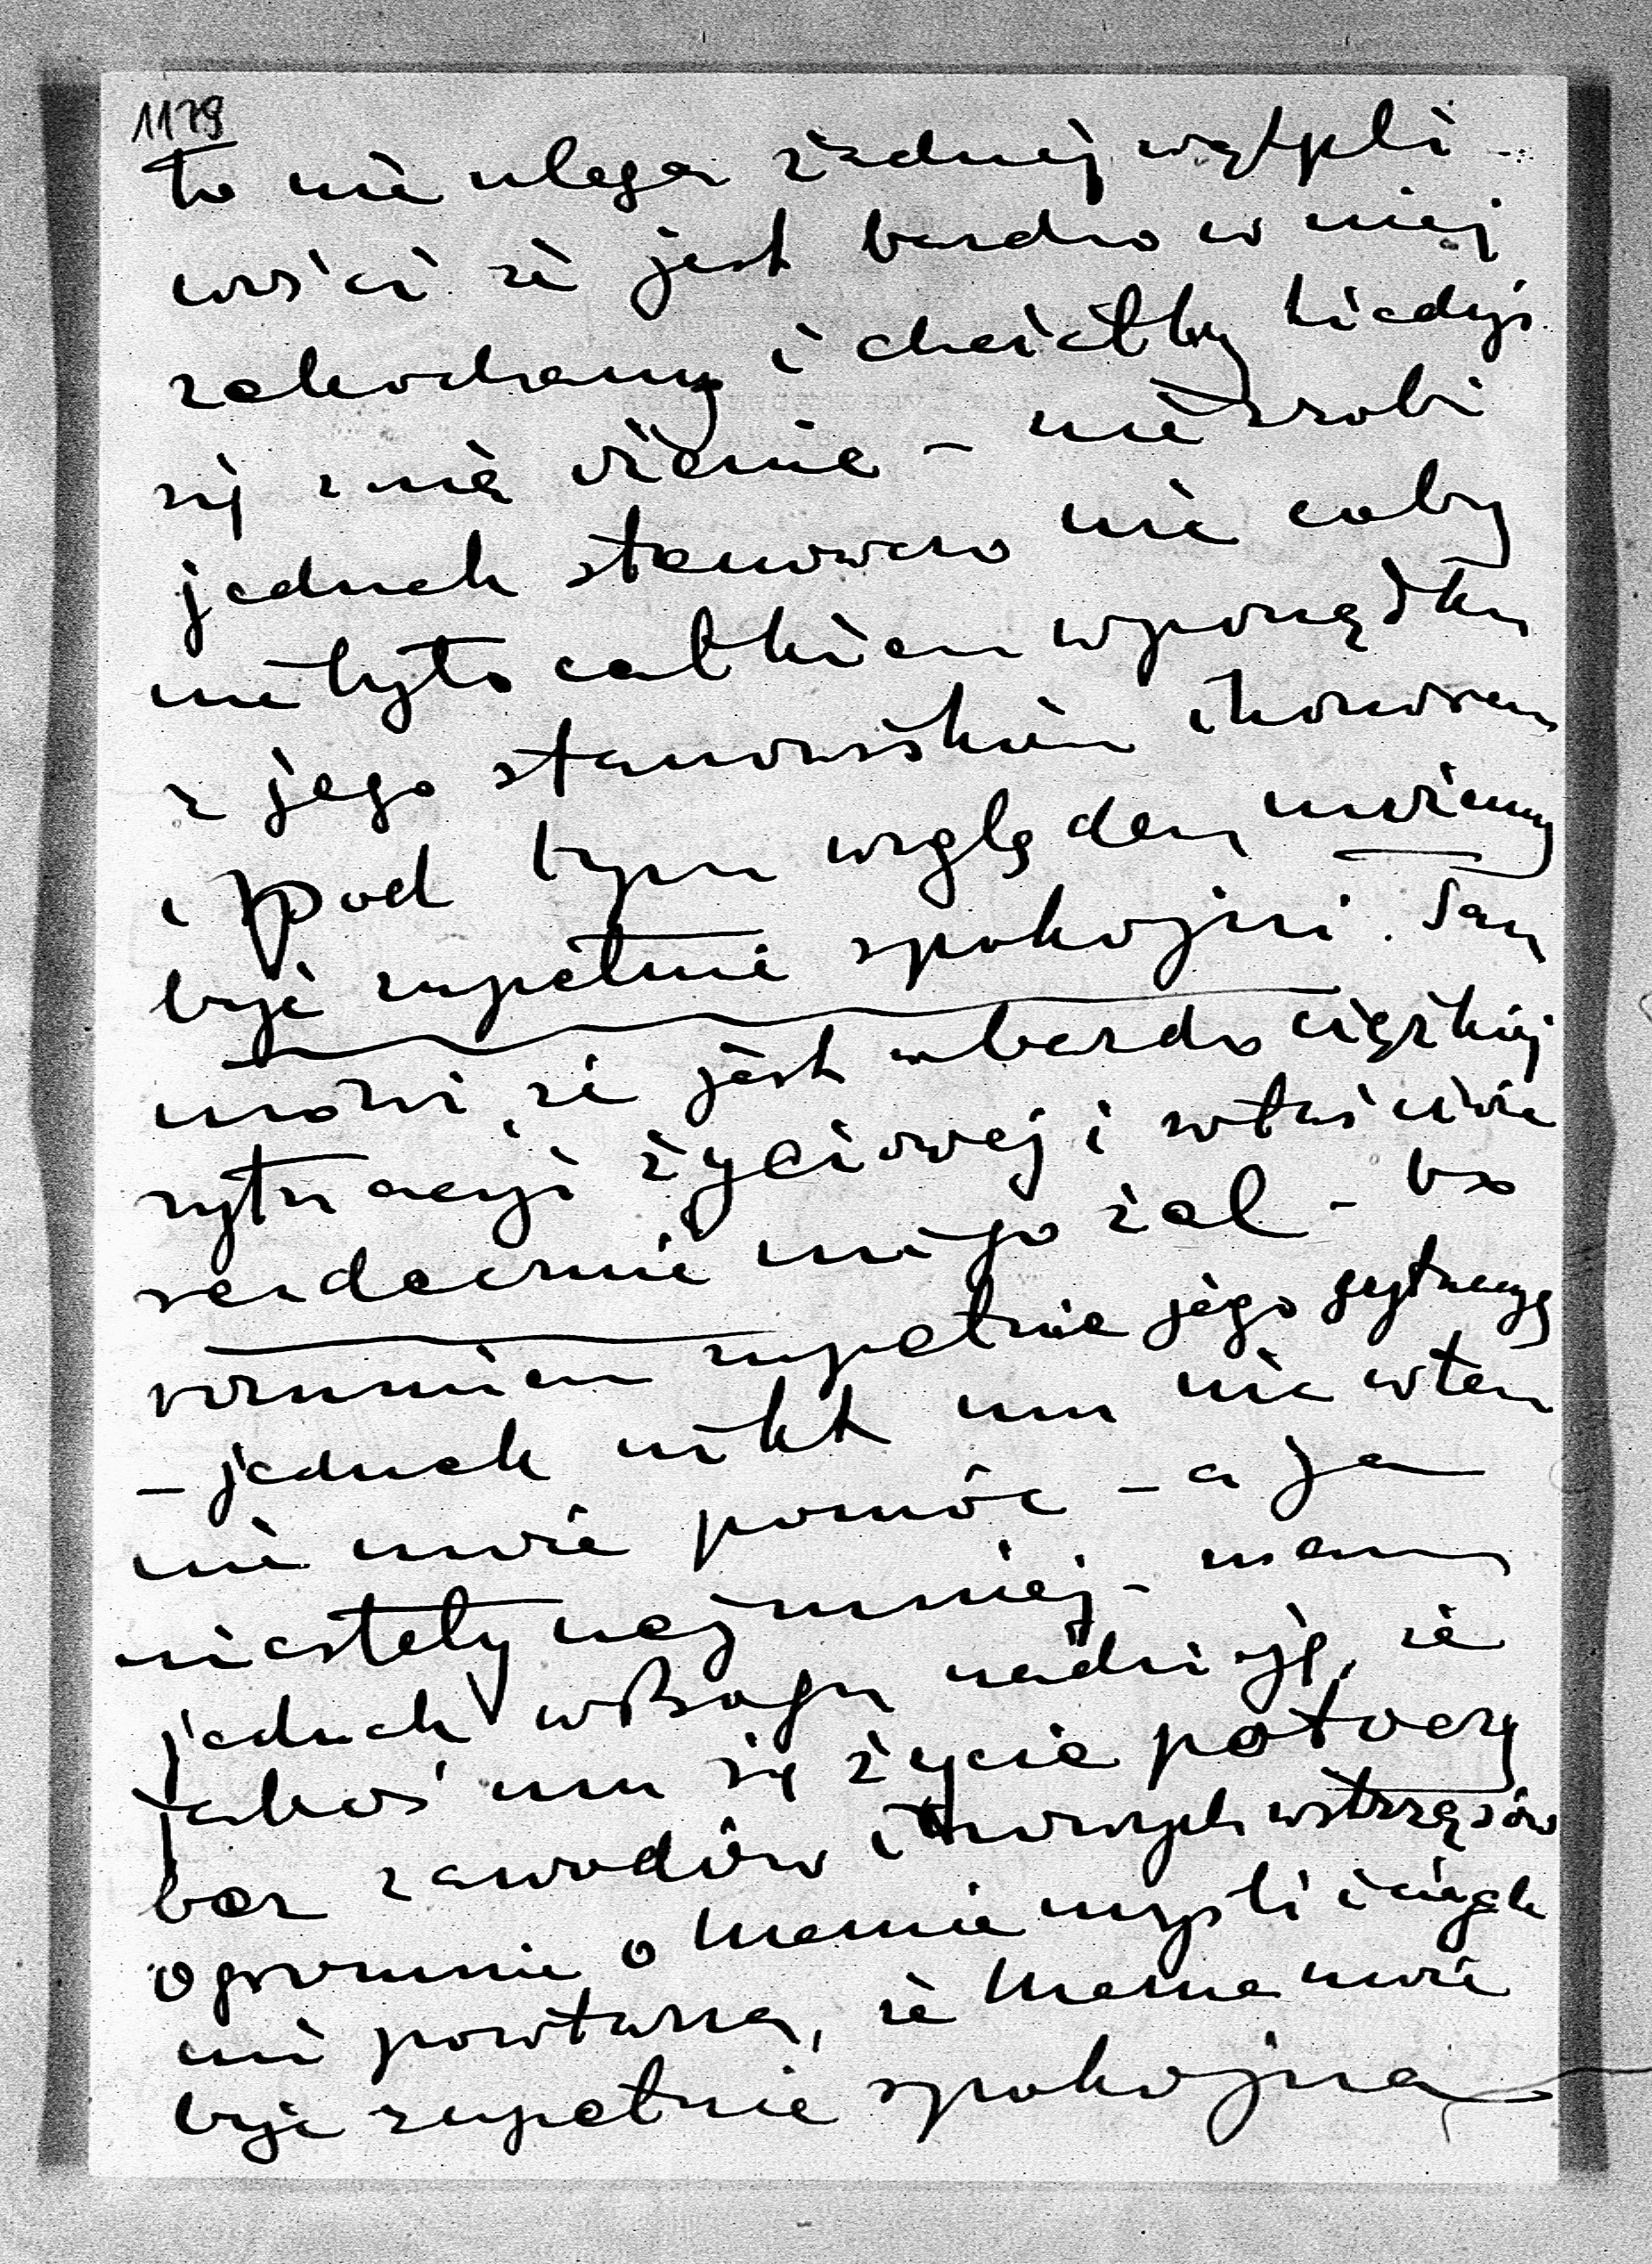 1179
to nie ulega żadnej wątpli-
wości że jest bardzo w niej
zakochany i chciałby kiedyś
się z nią ożenić – nie zrobi
jednak stanowczo nic coby
nie było całkiem w porządku
z jego stanowiskiem i honorem
i pod tym względem możemy
być zupełnie spokojni. Sam
mówi że jest w bardzo ciężkiej
sytuacyi życiowej i właściwie
serdecznie mi go żal – bo
rozumiem zupełnie jego sytuacyę
– jednak nikt mu nic w tem
nie może pomóc – a ja
niestety najmniej – mam
jednak w Bogu nadzieję, że
jakoś mu się życie potoczy
bez zawodów i nowych wstrząsów
ogromnie o Mamie myśli i ciągle
mi powtarza, że Mama może
być zupełnie spokojna